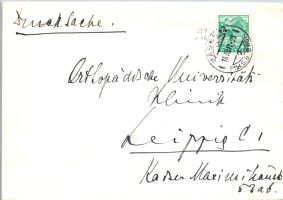 Drucksache.
Orthopädische Universitäts-
Klinik
Leipzig C1
Kaiser Maximilianstr